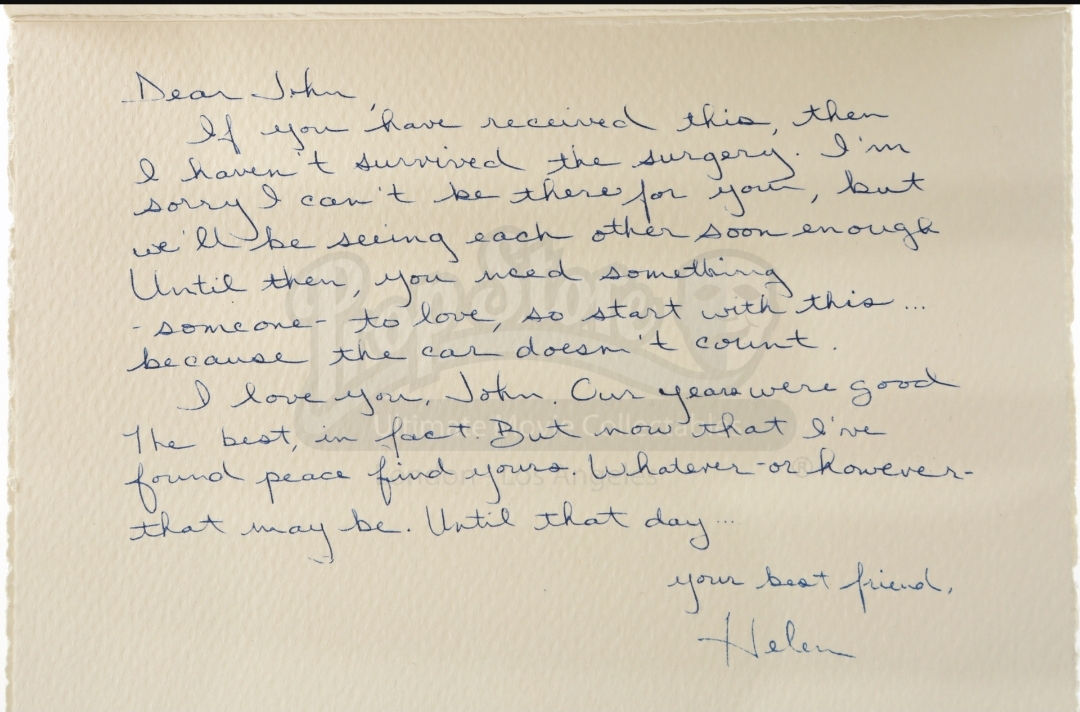 Dear John,
If you have received this, then
I haven't survived the surgery. I'm
sorry I can't be there for you, but
we'll be seeing each other soon enough
Until then, you need something
-someone- to love, so start with this...
because the car doesn't count.
I love you, John. Our years were good
The best, in fact. But now that I've
found peace find yours. Whatever-or however-
that may be. Until that day...
your best friend,
Helen
Prop Store
Ultimate Movie Collectables
London - Los Angeles ®